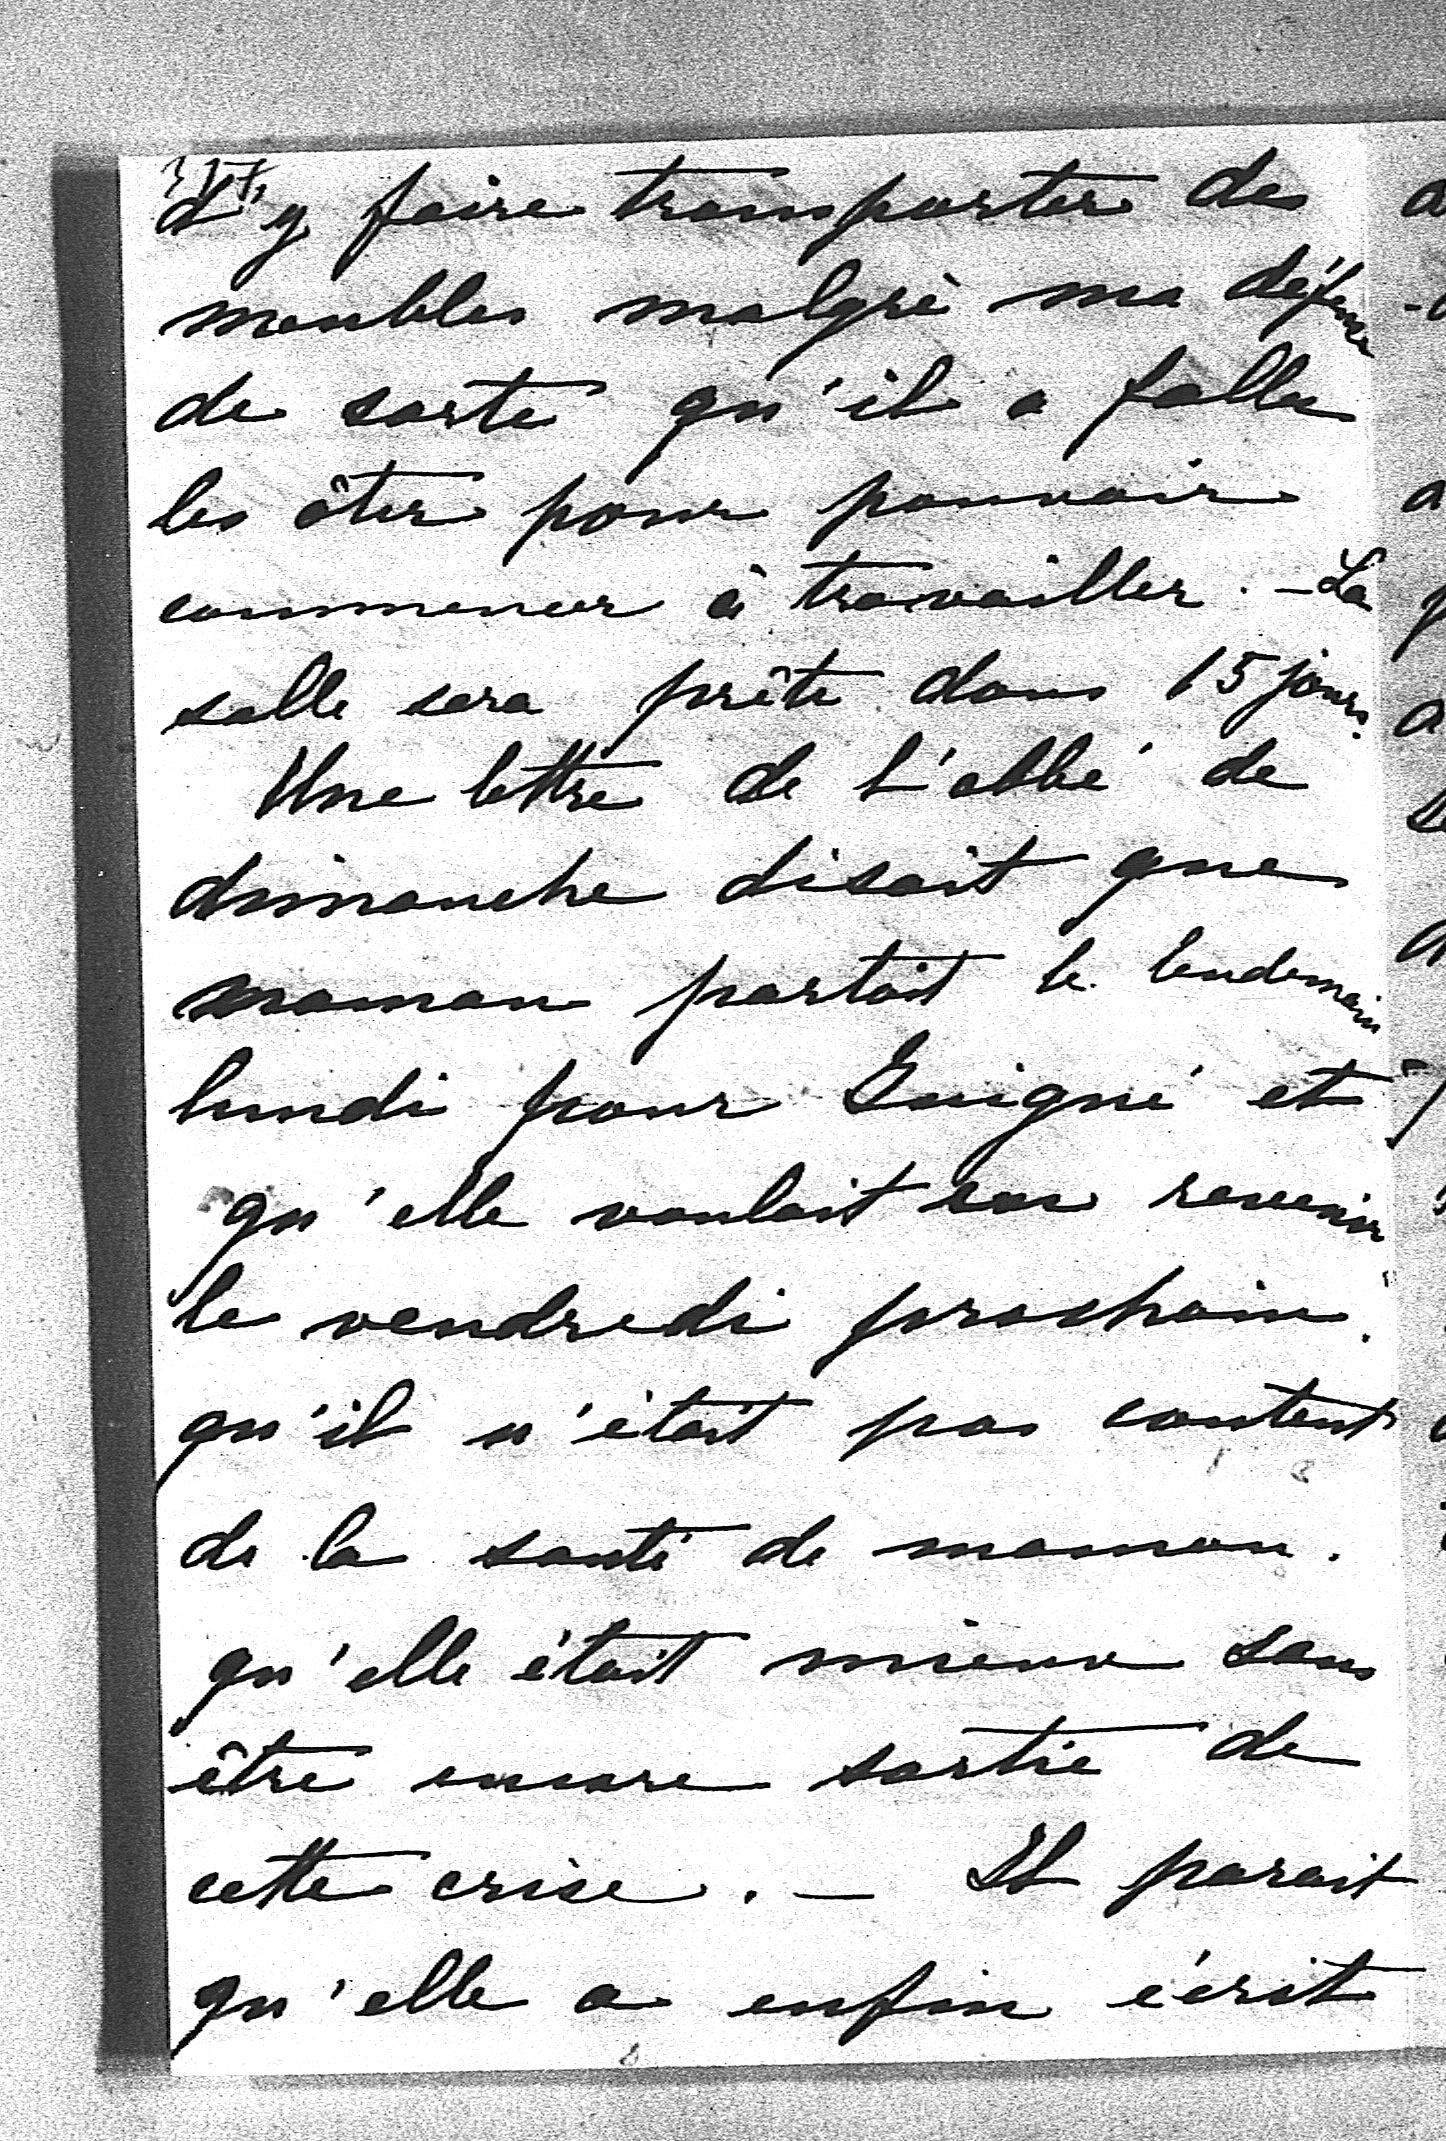 d'y faire transporter des
meubles malgré ma défense
de sorte qu'il a fallu
les ôter pour pouvoir
commencer à travailler. - La
salle sera prête dans 15 jours.
Une lettre de L'abbé de
dimanche disait que
maman partait le lendemain
lundi pour Guigné et
qu'elle voulait revenir
le vendredi prochain.
qu'il n'était pas content
de la santé de maman.
qu'elle était mieux sans
être encore sortie de
cette crise. - Il parait
qu'elle a enfin écrit